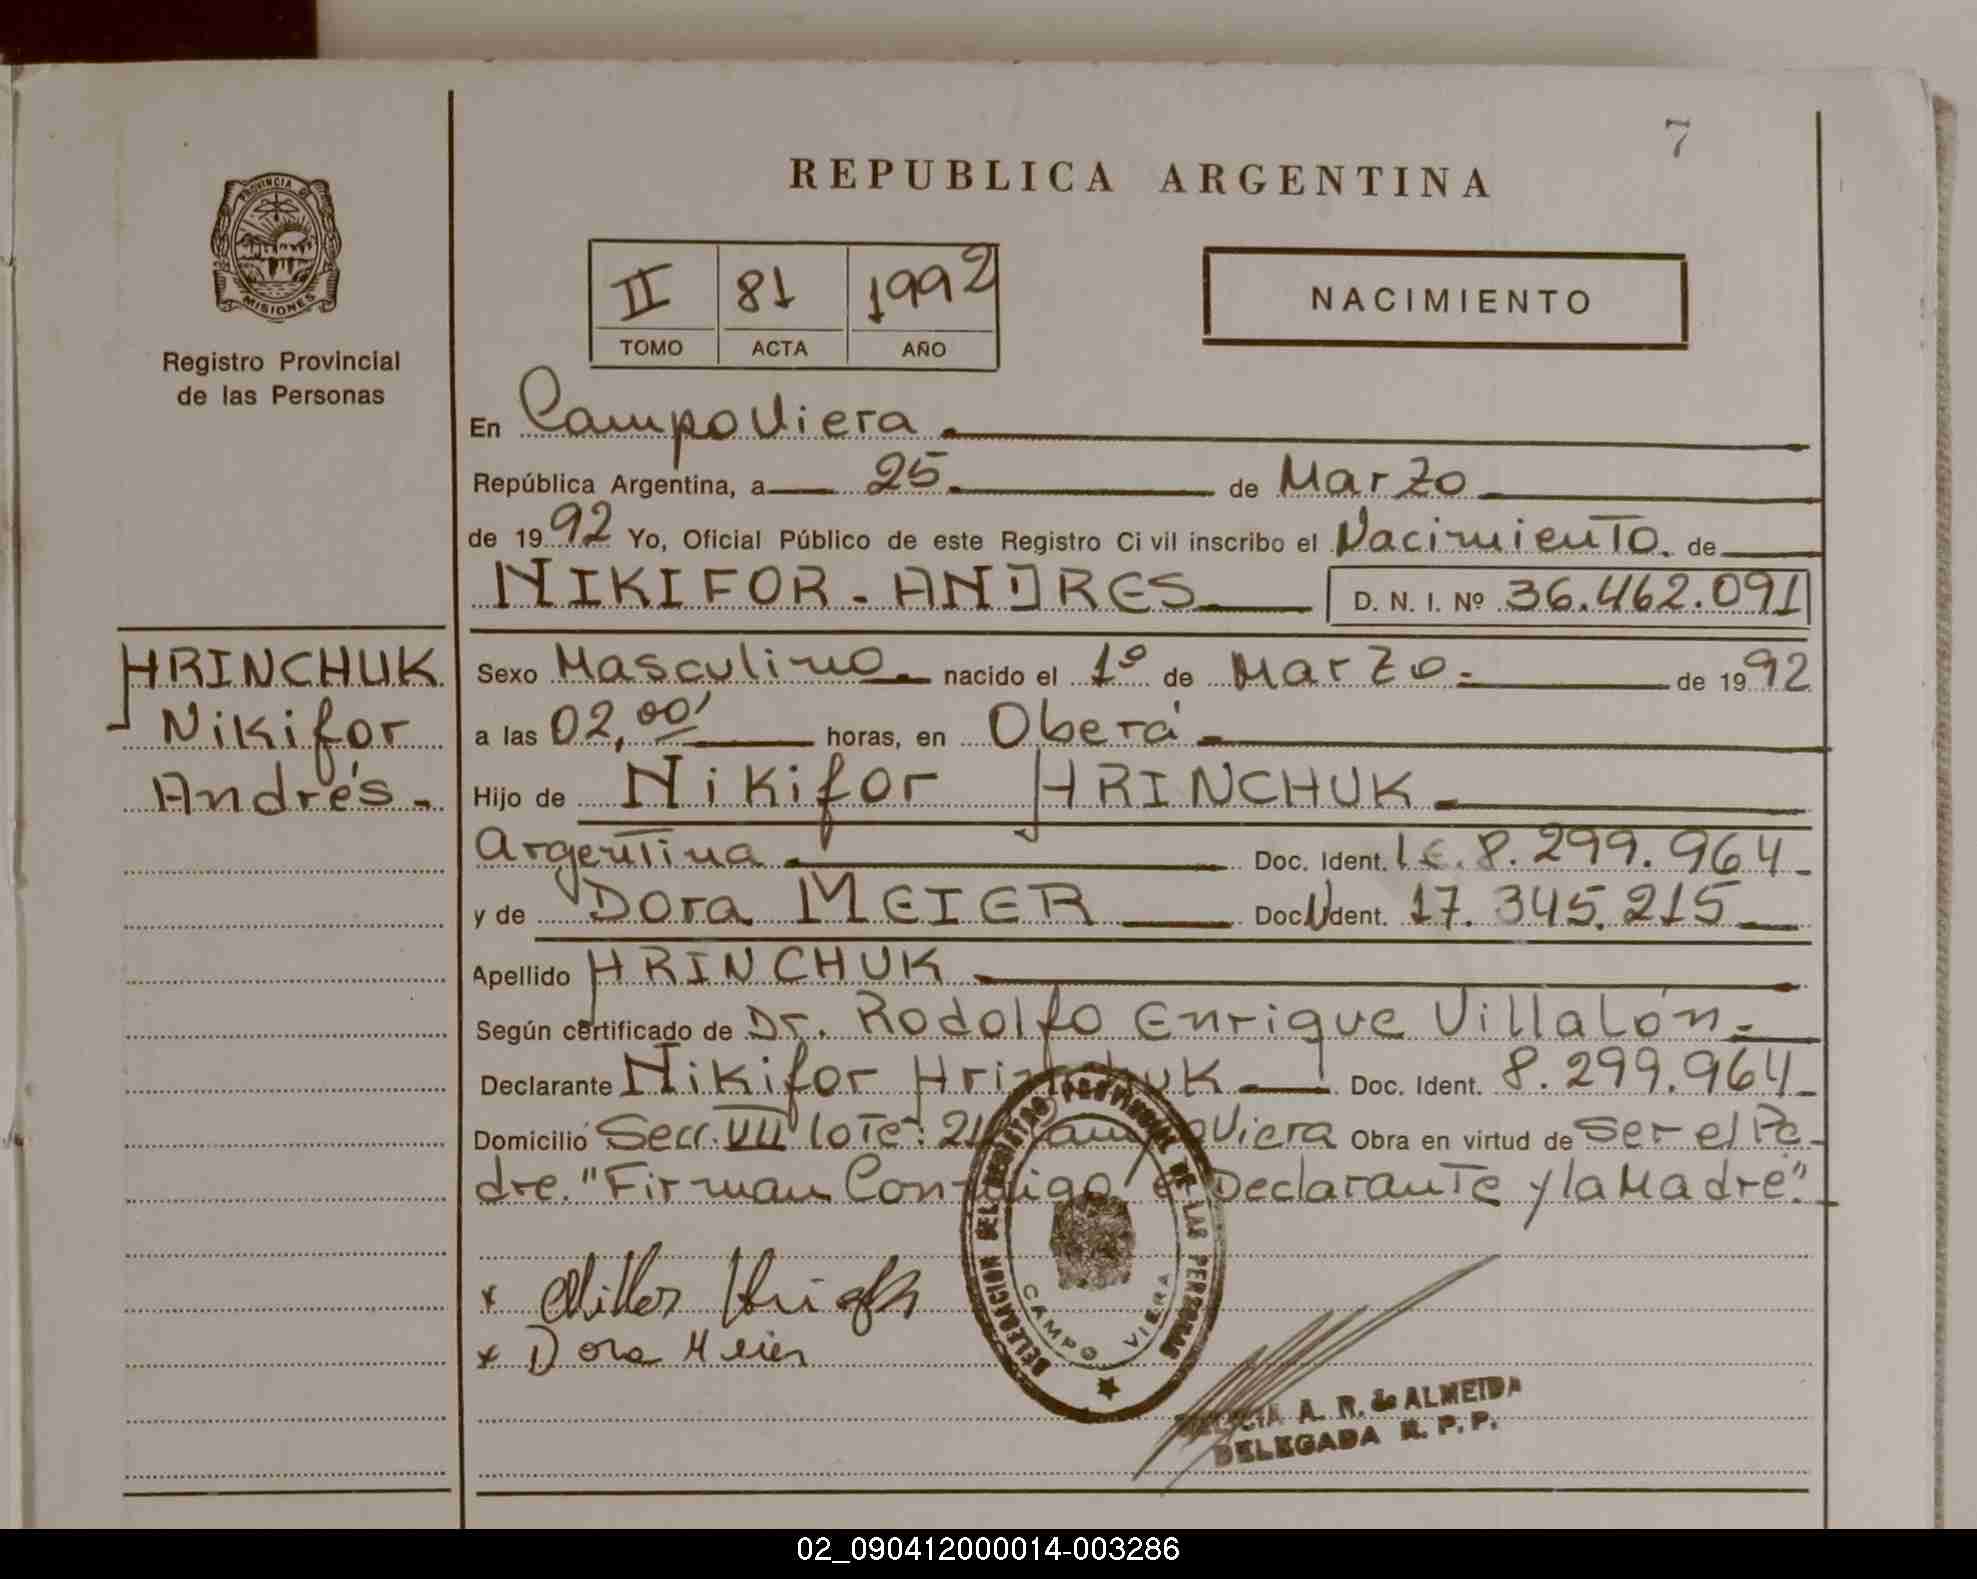 7
REPUBLICA ARGENTINA
PROVINCIA DE
MISIONES
Registro Provincial
de las Personas
II 81 1992
TOMO ACTA AÑO
NACIMIENTO
En Campo Viera
República Argentina, a 25 de Marzo
de 1992 Yo, Oficial Público de este Registro Civil inscribo el Nacimiento. de
NIKIFOR - ANDRES D. N. I. Nº 36.462.091
HRINCHUK
Nikifor
Andrés -
Sexo Masculino nacido el 1º de Marzo - de 1992
a las 02,00' horas, en Oberá
Hijo de Nikifor HRINCHUK
Argentina Doc. Ident. l.e. 8.299.964
y de Dora MEIER Doc. Ident. 17.345.215
Apellido HRINCHUK
Según certificado de Dr. Rodolfo Enrique Villalón -
Declarante Nikifor Hrinchuk Doc. Ident. 8.299.964
Domicilio Secc. VII lote: Campo Viera Obra en virtud de Ser el Pa-
dre. "Firman Conmigo el Declarante y la Madre".
x
x Dora Meier
DELEGACION DEL REGISTRO PROVINCIAL DE LAS PERSONAS
CAMPO VIERA
A. R. de ALMEIDA
DELEGADA R. P. P.
02_090412000014-003286